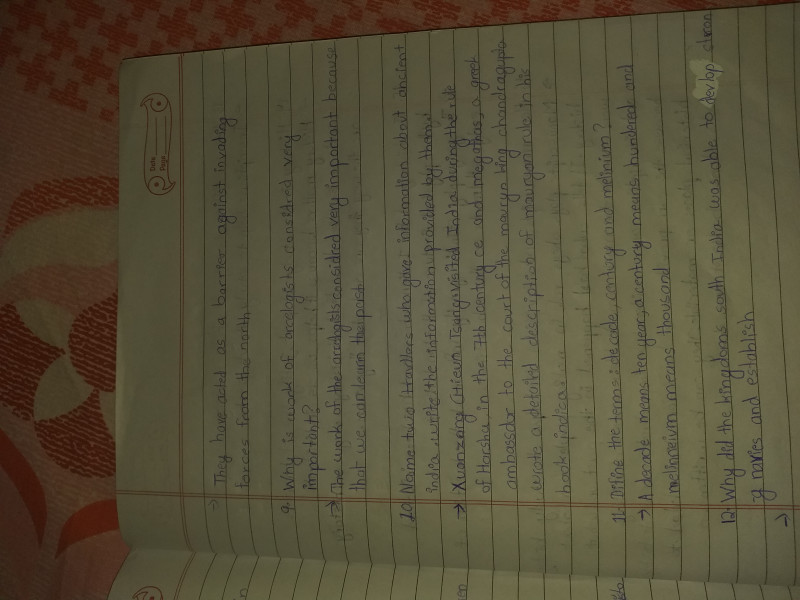 Date
Page
→ They have acted as a barrier against invading
forces from the north.
9. Why is work of arcelogists considred very
important?
→ The work of the arcelogists considred very important because
that we can learn the past
10. Name two travllers who gave information about ancient
india. write the information provided by them!
→ Xuanzang (Hieun Tsung) visited India during the rule
of Harsha in the 7th century ce and megasthas, a greek
ambassdor to the court of the mauryn king chandragupta
wrote a detailed description of mauryan rule in his
book indica.
11. Difine the terms: decade, century and melinium?
→ A decade means ten year, a century means hundered and
melineium means thousand
12. Why did the kingdoms south India was able to devlop stron
g navies and establish
→